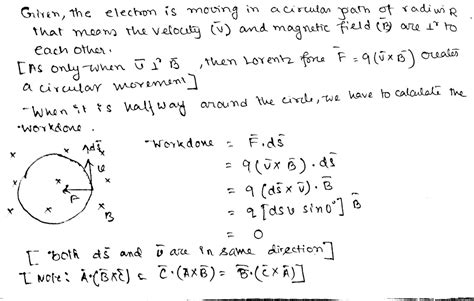 Given, the electron is moving in a circular path of radius R
that means the velocity (v̄) and magnetic field (B̄) are ⊥r to
each other.
[As only when v̄ ⊥r B̄, then Lorentz force F̄ = q(v̄×B̄) creates
a circular movement]
-When it is halfway around the circle, we have to calculate the
workdone.
Workdone = F̄.ds̄
= q(v̄×B̄).ds̄
= q(ds̄×v̄).B̄
= q[dsv sin0°]B̄
= 0
ds̄
v
F
B
[both ds̄ and v̄ are in same direction]
[Note: Ā.(B̄×C̄) = C̄.(Ā×B̄) = B̄.(C̄×Ā)]